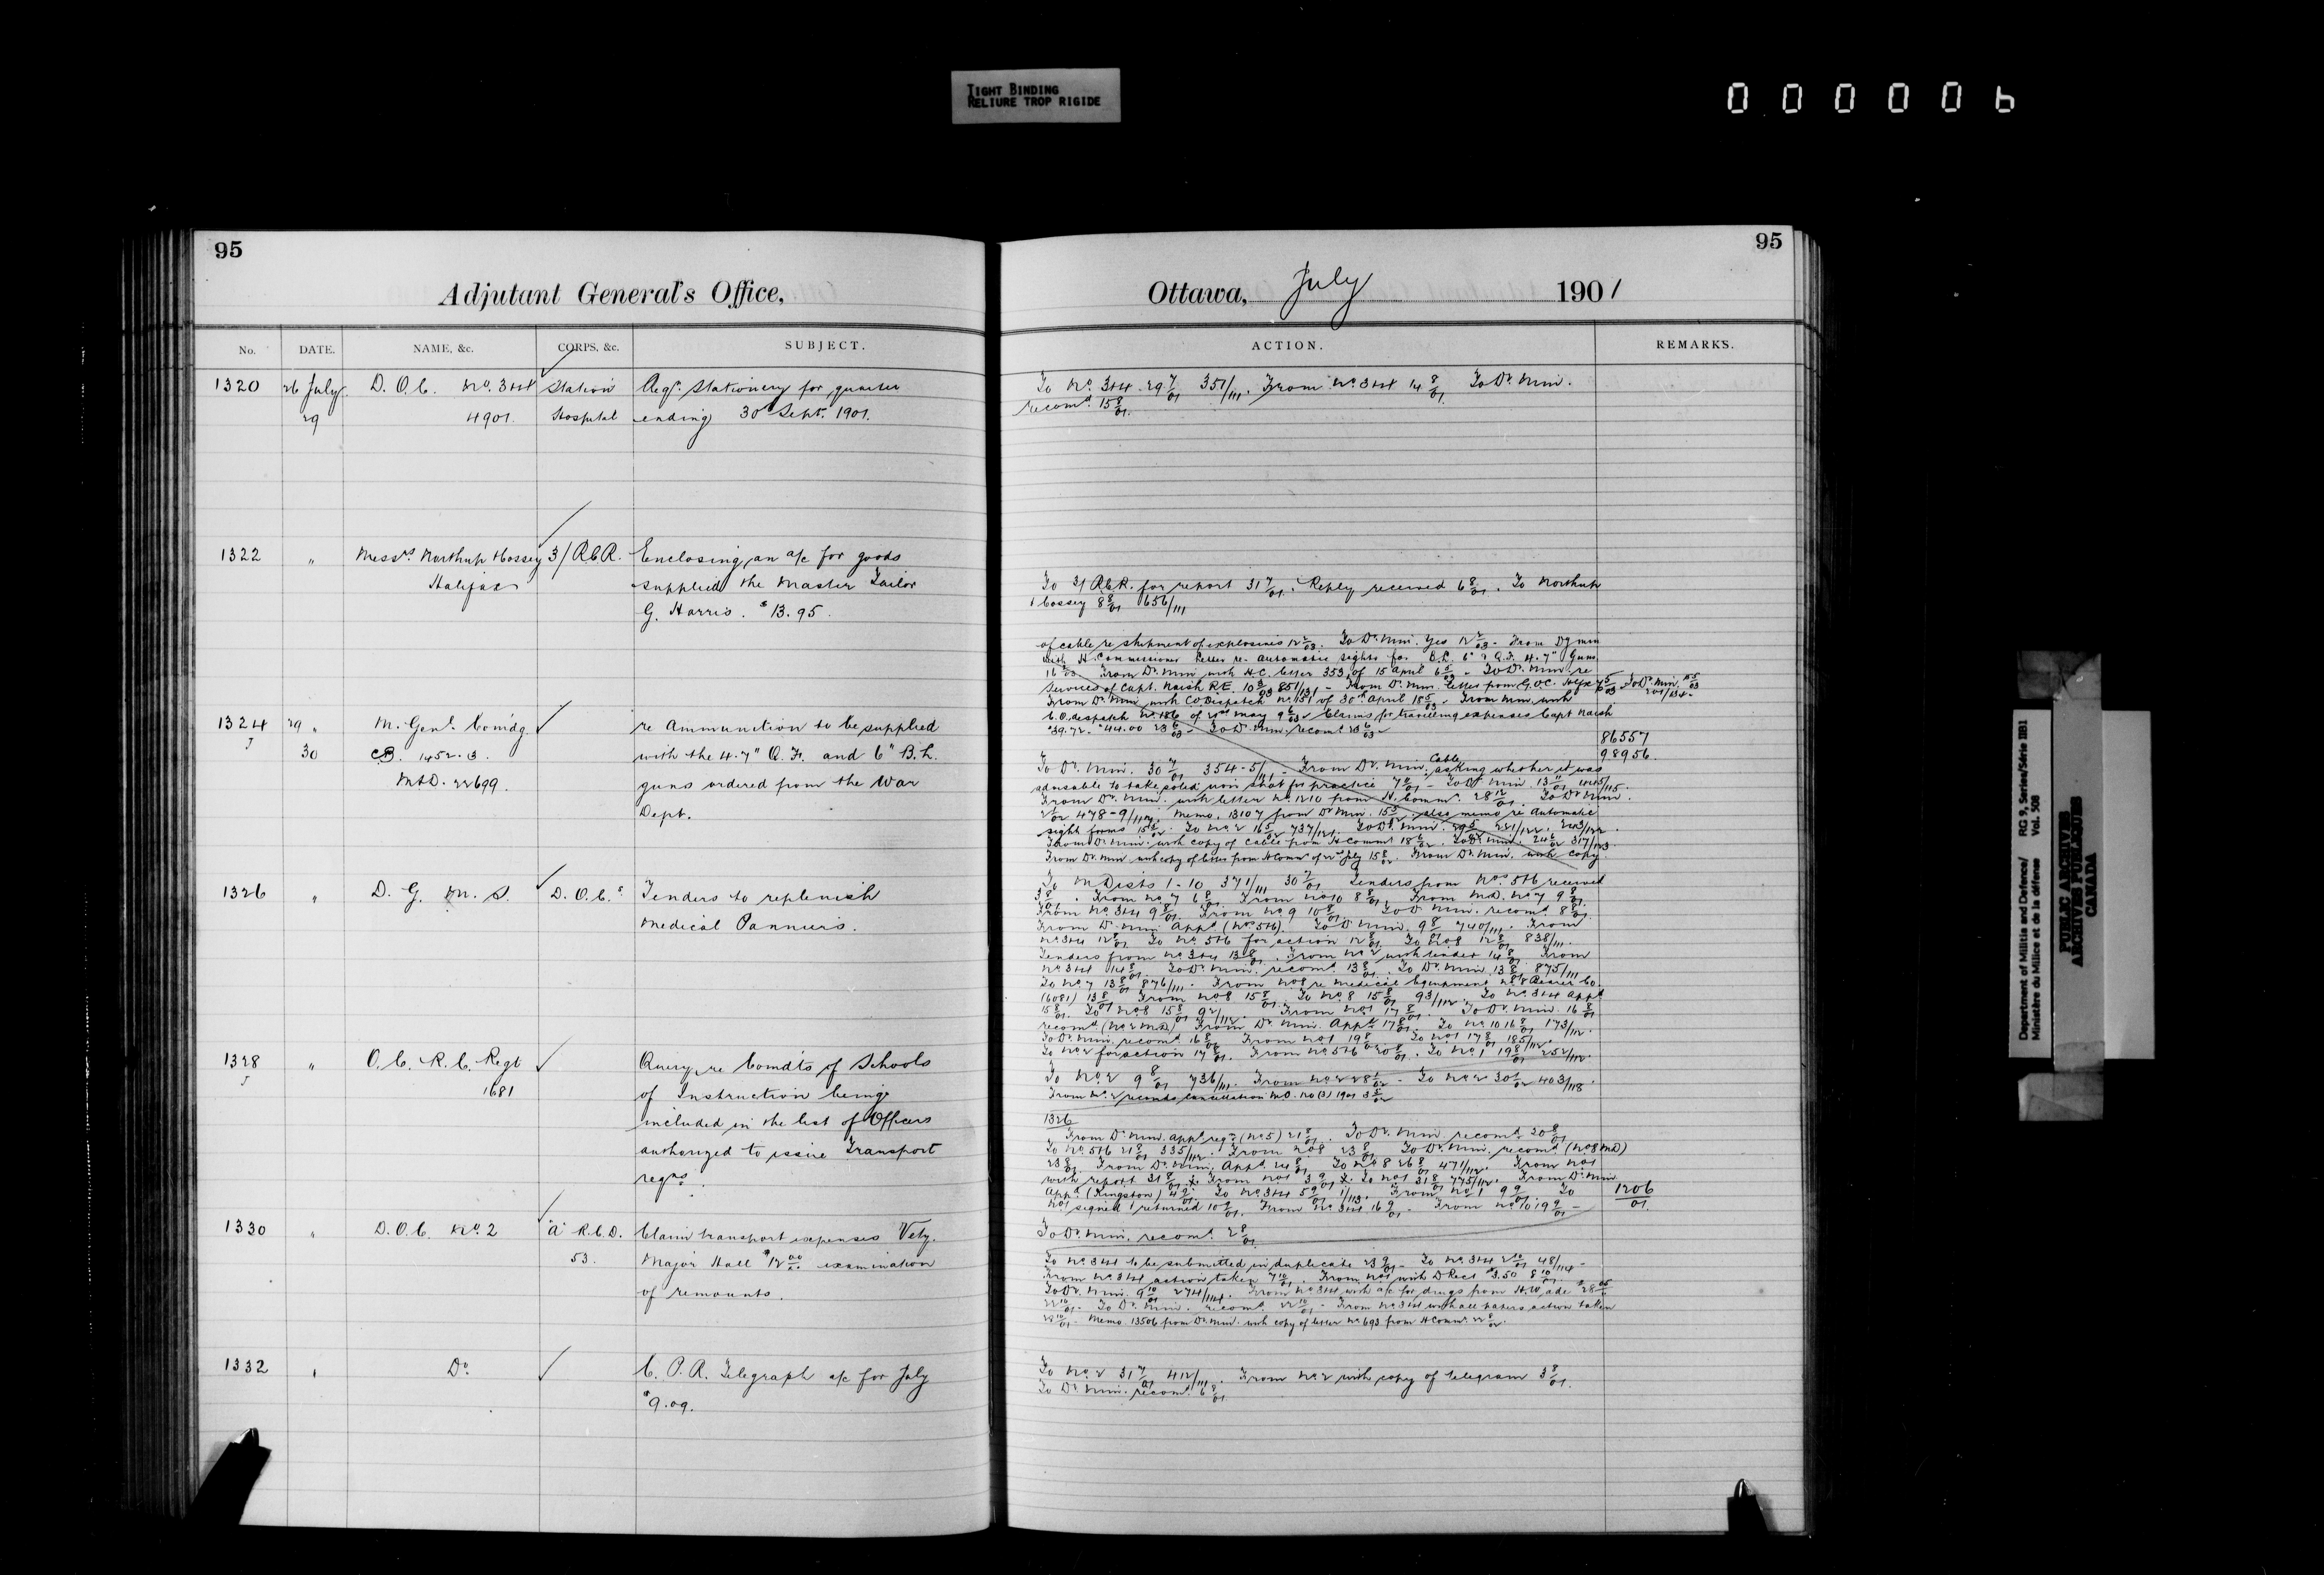 TIGHT BINDING
RELIURE TROP RIGIDE
000006
95
Adjutant General's Office,
No. DATE. NAME, &c. CORPS, &c. SUBJECT.
1320 26 July D.O.C. No. 3+4 Station Reqn. Stationery for quarter
29 4901. Hospital ending 30 Sept. 1901.
1322 " Messrs. Northup Hossey 3/ R.C.R. Enclosing an a/c for goods
Halifax supplied the Master Tailor
G. Harris. $13.95.
1324 29 " M. Genl. Comdg. re Ammunition to be supplied
30 1452.13. with the 4.7" Q.F. and 6" B.L.
M&D. 22699. guns ordered from the War
Dept.
1326 " D. G. M. S. D.O.C.s Tenders to replenish
Medical Panniers.
1328 " O.C. R.C. Regt Query re Comdts of Schools
1681 of Instruction being
included in the list of Officers
authorized to issue Transport
reqns.
1330 " D.O.C. No. 2 "A" R.C.D. Claim transport expenses Vety.
53. Major Hall $12 00/xx examination
of remounts.
1332 " Do. C.P.R. Telegraph a/c for July
$9.09.
95
Ottawa, July 1901
ACTION. REMARKS.
To No. 3+4 29 7/01 351/111. From No. 3+4 14 8/01. To Dr. Min.
recomd. 15 8/01.
To 3/ R.C.R. for report 31 7/01. Reply received 6 8/01. To Northup
& Cossey 8 8/01 656/111
of cable re shipment of explosives 12 2/03. To Dr. Min. Yes 12 2/03 - From
with H. Commissioner letter re automatic sights for B.L. 6" & Q.F. 4.7" Guns
From Dr. Min with H.C. letter 353 of 15 April 6 5/03 - To Dr. Min. re
Services of Capt. Naish R.E. From Dr. Min. letter from G.O.C.
From Dr. Min with CO Dispatch No. 131 of 30th April 18 5/03 - From Min with
C.O. despatch No. 186 of May 9 6/03 Claims for travelling expenses Capt Naish
$39.72. $44.00 23 6/03 - To Dr. Min. recomd. 23 6/03
86557
98956.
To Dr. Min. 30 7/01 354-5/111 - From Dr. Min. Cable asking whether it was
advisable to take solid iron shot for practice To Dr. Min
From Dr. Min. with letter No. 1210 from H. Commr. 28 12/01. To Dr Min.
478-9/117. Memo. 13107 from Dr Min. also memo re automatic
sight forms To No. 2 737/121. To Dr. Min.
From Dr. Min. with copy of cable from H Commr 18 6/02. To Dr. Min. 24 6/02 317/123.
From Dr. Min with copy of letter from H Commr of July 15 8/02. From Dr. Min. with copy
To M Dists 1-10 371/111 30 7/01 Tenders from Nos. 5+6 received
From No. 7 6 8/01. From No 10 8 8/01. From M.D. No. 7 9 8/01.
From No. 3+4 9 8/01. From No. 9 10 8/01. To Dr. Min. recomd. 8 8/01.
From Dr. Min Appd. (Nos 5+6). To Dr Min. 9 8/01 740/111. From
No. 3+4 12 8/01 To No. 5+6 for action 12 8/01 To No 8 12 8/01 838/111.
Tenders from No. 3+4 13 8/01. From No 2 with tender 14 8/01 From
No. 3+4 14 8/01. To Dr. Min. recomd. 13 8/01. To Dr. Min. 13 8/01 875/111
To No. 7 13 8/01 876/111. From No 8 re Medical Equipment No. 8 Bearer Co.
(6081) 13 8/01 From No 8 15 8/01. To No. 8 15 8/01 93/112. To No. 3+4 Appd
15 8/01. To No. 8 15 8/01 92/112. From No 1 17 8/01. To Dr. Min. 16 8/01
recomd (No 2 M.D.) From Dr. Min. Appd. 17 8/01. To No. 10 16 8/01 173/112.
To Dr. Min. recomd 16 8/01 From No 1 19 8/01 To No 1 17 8/01 185/112.
To No 2 for action 17 8/01. From No. 5+6 20 8/01. To No. 1 19 8/01 252/112.
To No. 2 9 8/01 736/111. From No 2 28 1/02 - To No 2 30 1/02 403/118.
From No. 2 records cancellation M.O. 120 (3) 1901 3 5/02
1326
From Dr. Min. Appd reqn. (No. 5) 21 8/01. To Dr. Min recomd. 20 8/01
To No. 5+6 21 8/01 335/112. From No 8 23 8/01 To Dr. Min. recomd (No 8 M.D)
23 8/01. From Dr. Min. Appd. 24 8/01 To No 8 26 8/01 471/112. From No 1
with report 31 8/01. From No 1 3 9/01. To No 1 31 8/01 775/112. From Dr. Min
Appd. (Kingston) 4 9/01. To No. 3+4 5 9/01 1/113. From No 1 9 9/01. To
No 1 signed & returned 10 9/01. From No 3+4 16 9/01. From No. 10 19 9/01 -
1206/01.
To Dr. Min. recomd. 2 8/01.
To No. 3+4 to be submitted in duplicate 23 9/01 - To No. 3+4 2 10/01 48/114 -
From No. 3+4 action taken 7 10/01. From No 1 with D Rect $3.50 8 10/01.
To Dr. Min. 9 10/01 274/114. From No. 3+4 with a/c for drugs from H. Wade
22 10/01 - To Dr. Min. recomd. 22 10/01 - From No. 3+4 with all papers action taken
Memo. 13506 from Dr. Min. with copy of letter No. 693 from H Commr. 22 8/02.
To No. 2 31 7/01 412/111. From No. 2 with copy of telegram 3 8/01.
To Dr. Min. recomd. 6 8/01
Department of Militia and Defence/ RG 9, Series/Série IIB1
Ministère du Milice et de la défense Vol. 508
PUBLIC ARCHIVES
ARCHIVES PUBLIQUES
CANADA